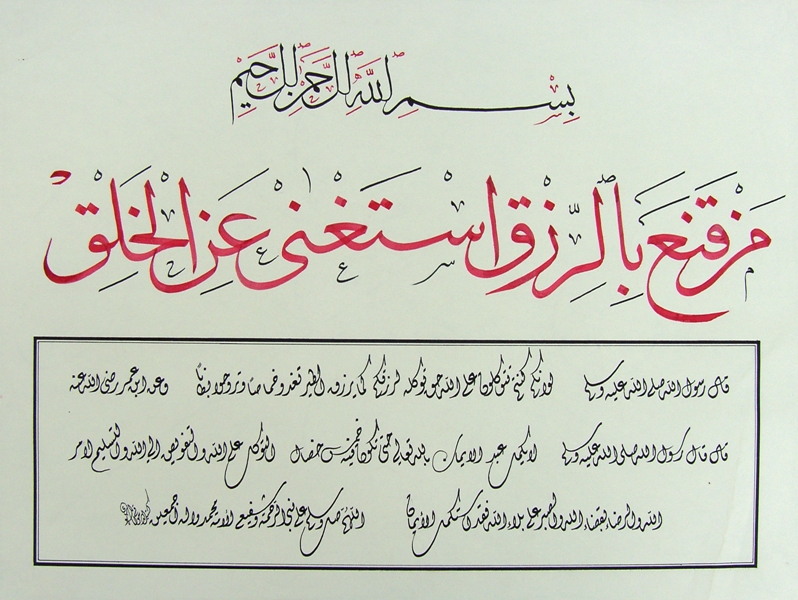 بسم الله الرحمن الرحيم
من قنع بالرزق استغنى عن الخلق
قال رسول الله صلى الله عليه وسلم لو أنكم كنتم تتوكلون على الله حق توكله لرزقكم كما يرزق الطير تغدو خماصا وتروح بطانا وعن ابن عمر رضى الله عنه
قال قال رسول الله صلى الله عليه وسلم لا يكمل عبد الايمان بالله تعالى حتى تكون فيه خمس خصال التوكل على الله والتفويض الى الله والتسليم لامر
الله والرضاء بقضاء الله والصبر على بلاء الله فقد استكمل الأيمان اللهم صل وسلم على نبي الرحمة وشفيع الامة محمد واله اجمعين